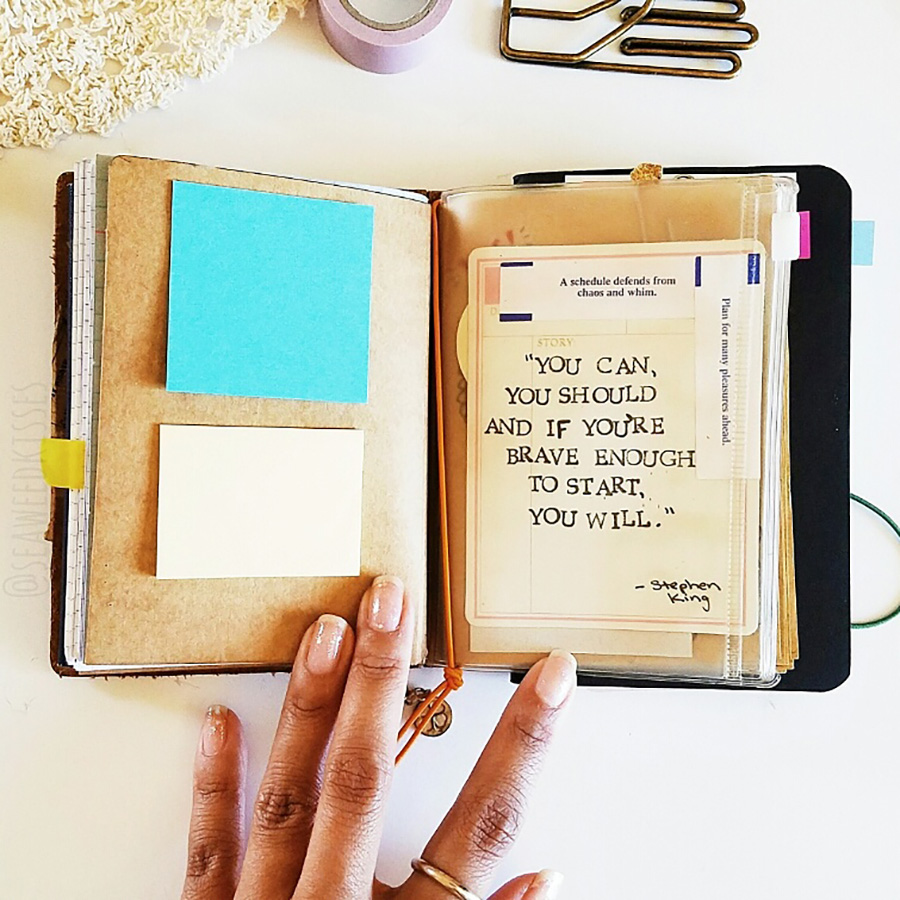 A schedule defends from
chaos and whim.
Plan for many pleasures ahead.
STORY:
"YOU CAN,
YOU SHOULD
AND IF YOU'RE
BRAVE ENOUGH
TO START,
YOU WILL."
- Stephen
King
@SEAWEEDKISSES